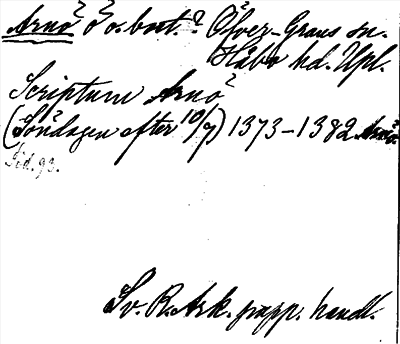 Arnö ö o. bost.? Öfver-Grans sn.
Håbo hd. Upl.
Scriptum Arnö
(Söndagen efter 10/7) 1373–1382
Sid. 93.
Sv. R. Ark. papp. handl.